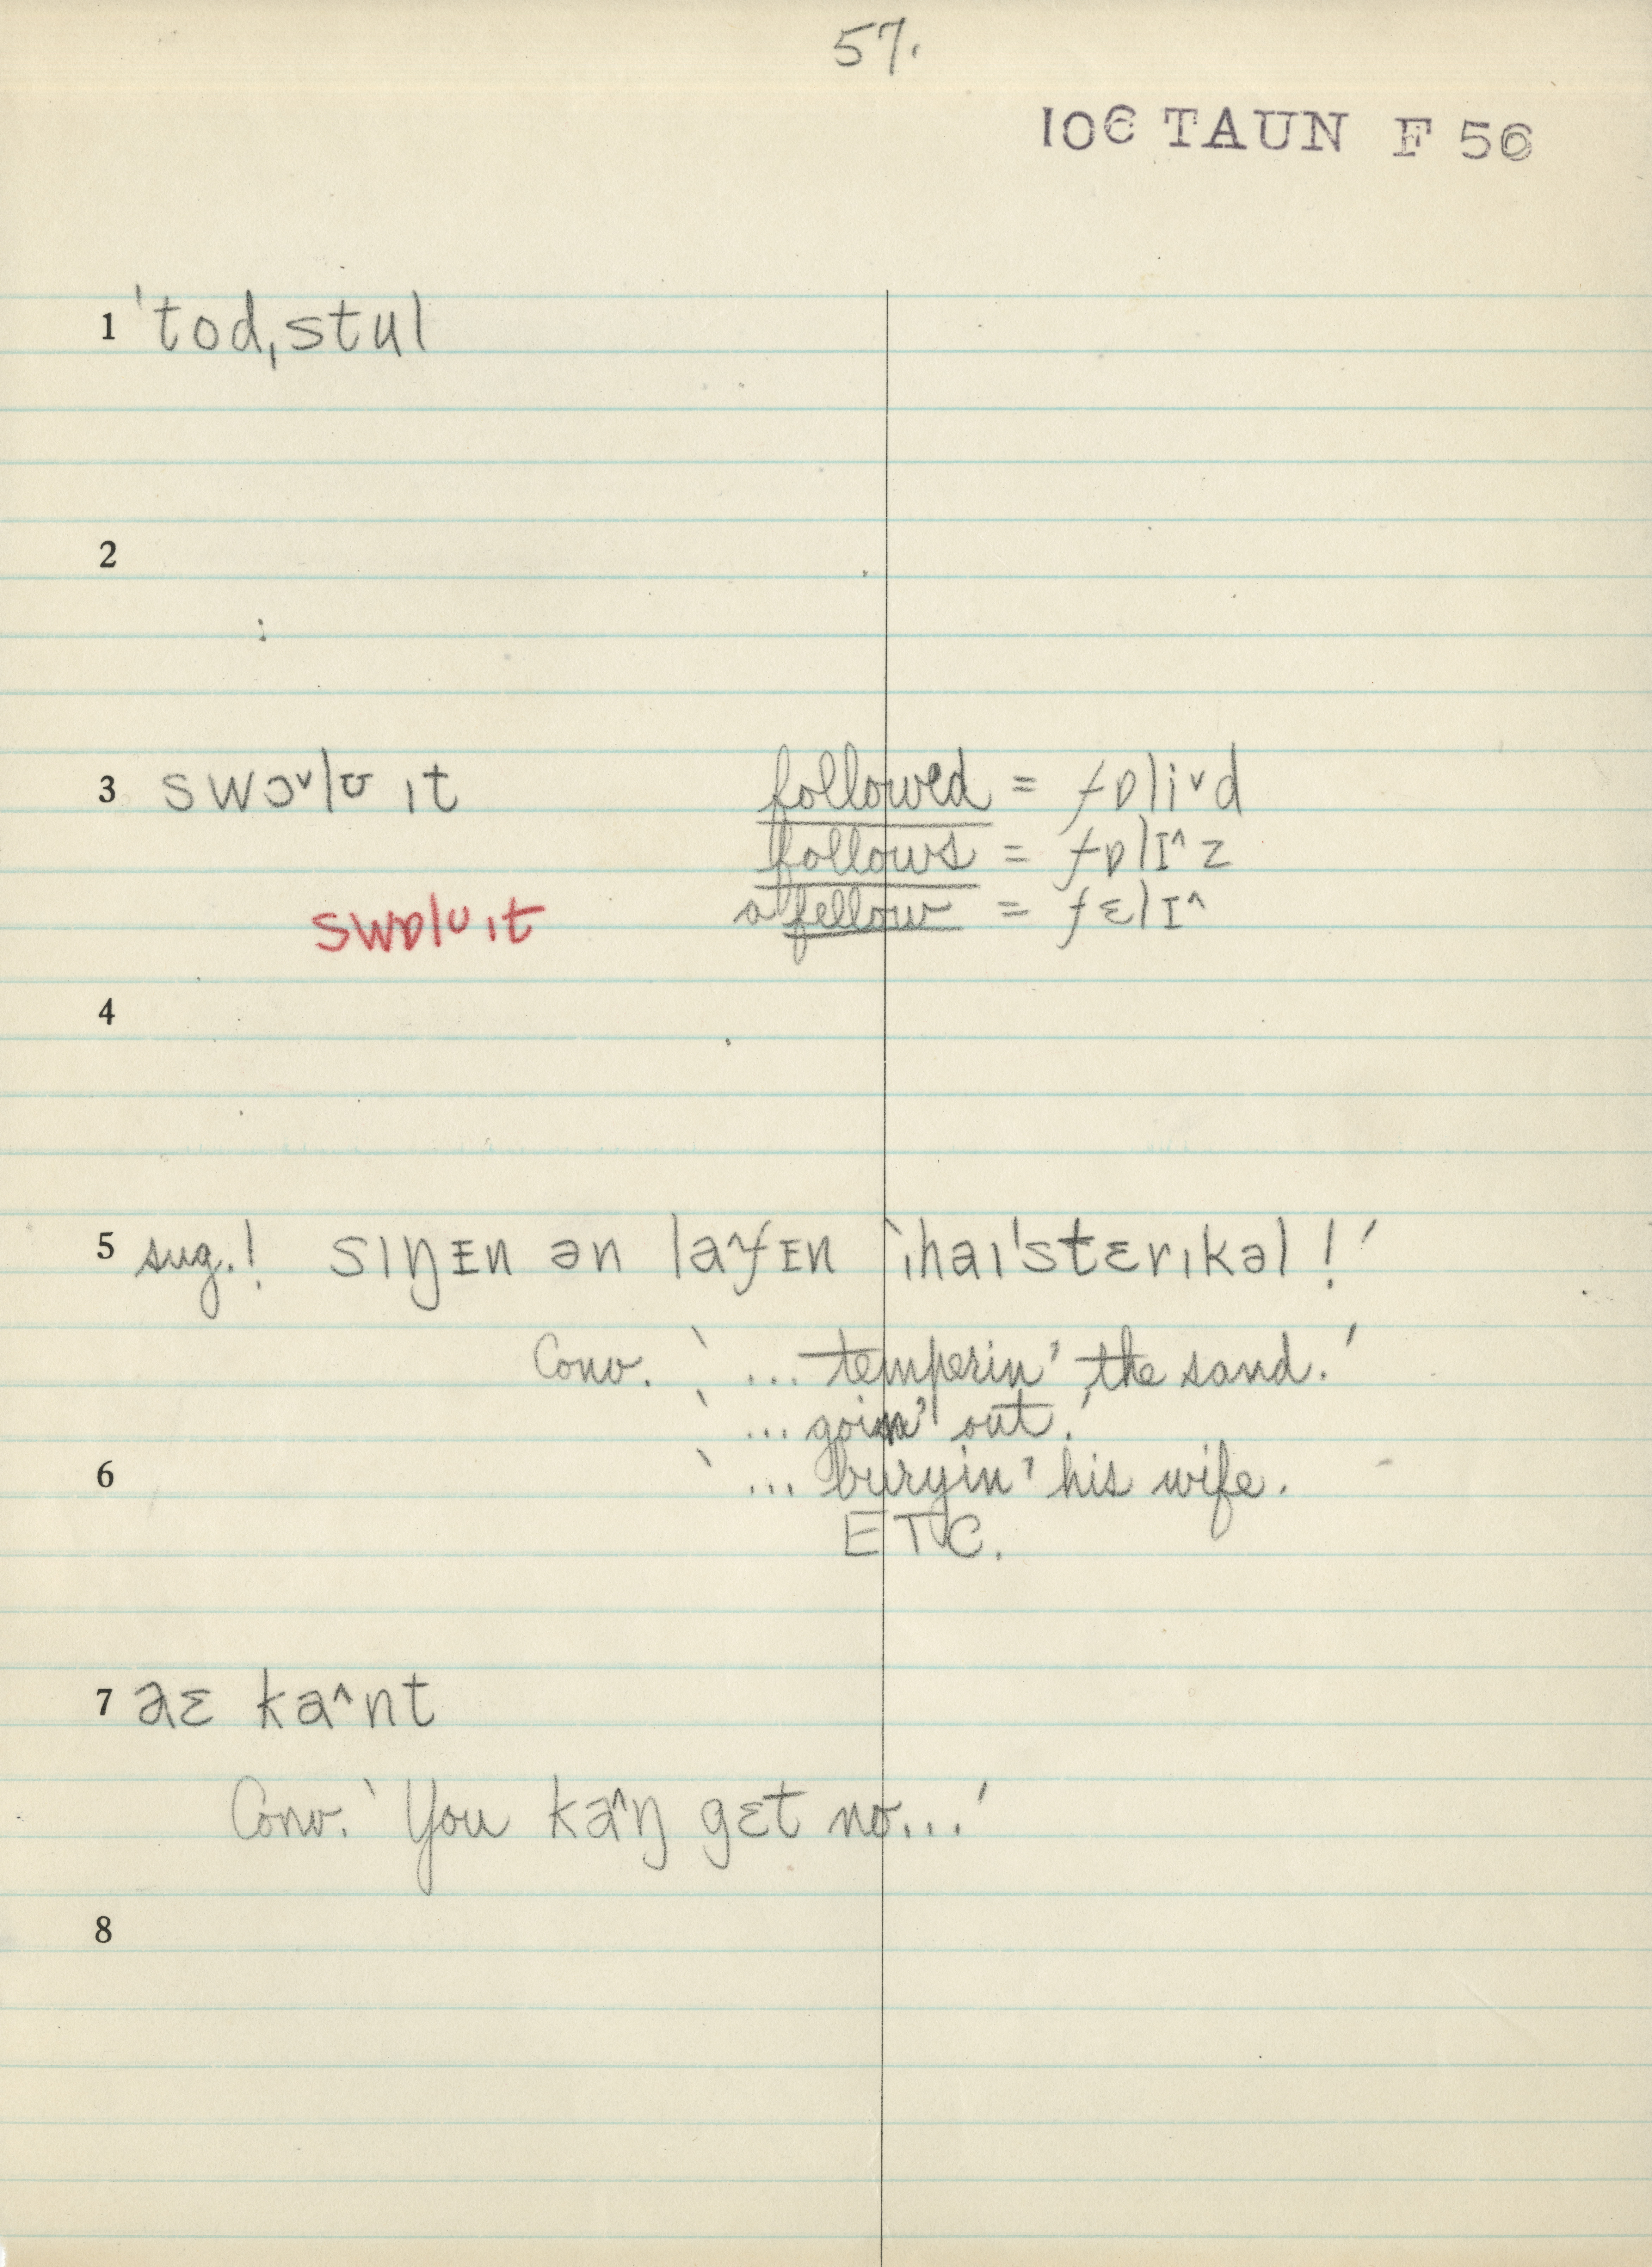 57.
106 TAUN F 56
1 ˈtodˌstul
2
3 swɔ˅lʊ ɪt followed = fɒli˅d
follows = fɒlɪ^z
swɒlʊ ɪt a fellow = fɛlɪ^
4
5 sug.! sɪŋɪn ən laˠfɪn ‵ɪhaɪˈstɛrɪkəl!′
Conv. ‵... temperin' the sand.′
‵... goin' out.′
6 ‵... buryin' his wife.
ETC.
7 aɛ ka^nt
Conv. ‵You ka^ŋ gɛt no...′
8